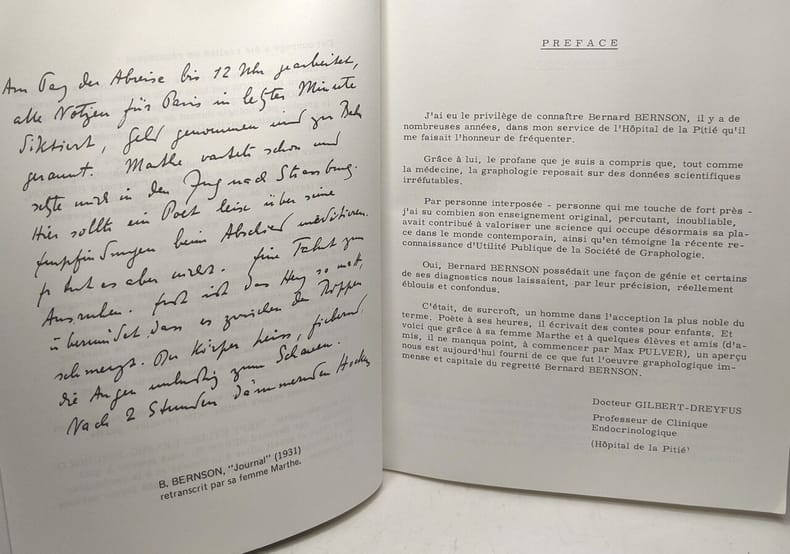 Am Tag der Abreise bis 12 Uhr gearbeitet,
alle Notizen für Paris in letzter Minute
diktiert, Geld genommen und zur Bahn
gerannt. Marthe wartete schon und
setzte mich in den Zug nach Strassburg.
Hier sollte ein Poet leise über seine
Empfindungen beim Abschied meditieren.
Er tut es aber nicht. Eine Fahrt zum
Ausruhen. Erst ist das Herz so matt,
übermüdet, dass es zwischen den Rippen
schmerzt. Der Körper heiss, fiebernd
die Augen unlustig zum Schauen.
Nach 2 Stunden dämmernden
B. BERNSON, "Journal" (1931)
retranscrit par sa femme Marthe.
PREFACE
J'ai eu le privilège de connaître Bernard BERNSON, il y a de
nombreuses années, dans mon service de l'Hôpital de la Pitié qu'il
me faisait l'honneur de fréquenter.
Grâce à lui, le profane que je suis a compris que, tout comme
la médecine, la graphologie reposait sur des données scientifiques
irréfutables.
Par personne interposée - personne qui me touche de fort près -
j'ai su combien son enseignement original, percutant, inoubliable,
avait contribué à valoriser une science qui occupe désormais sa pla-
ce dans le monde contemporain, ainsi qu'en témoigne la récente re-
connaissance d'Utilité Publique de la Société de Graphologie.
Oui, Bernard BERNSON possédait une façon de génie et certains
de ses diagnostics nous laissaient, par leur précision, réellement
éblouis et confondus.
C'était, de surcroft, un homme dans l'acception la plus noble du
terme. Poète à ses heures, il écrivait des contes pour enfants. Et
voici que grâce à sa femme Marthe et à quelques élèves et amis (d'a-
mis, il ne manqua point, à commencer par Max PULVER), un aperçu
nous est aujourd'hui fourni de ce que fut l'oeuvre graphologique im-
mense et capitale du regretté Bernard BERNSON.
Docteur GILBERT-DREYFUS
Professeur de Clinique
Endocrinologique
(Hôpital de la Pitié)